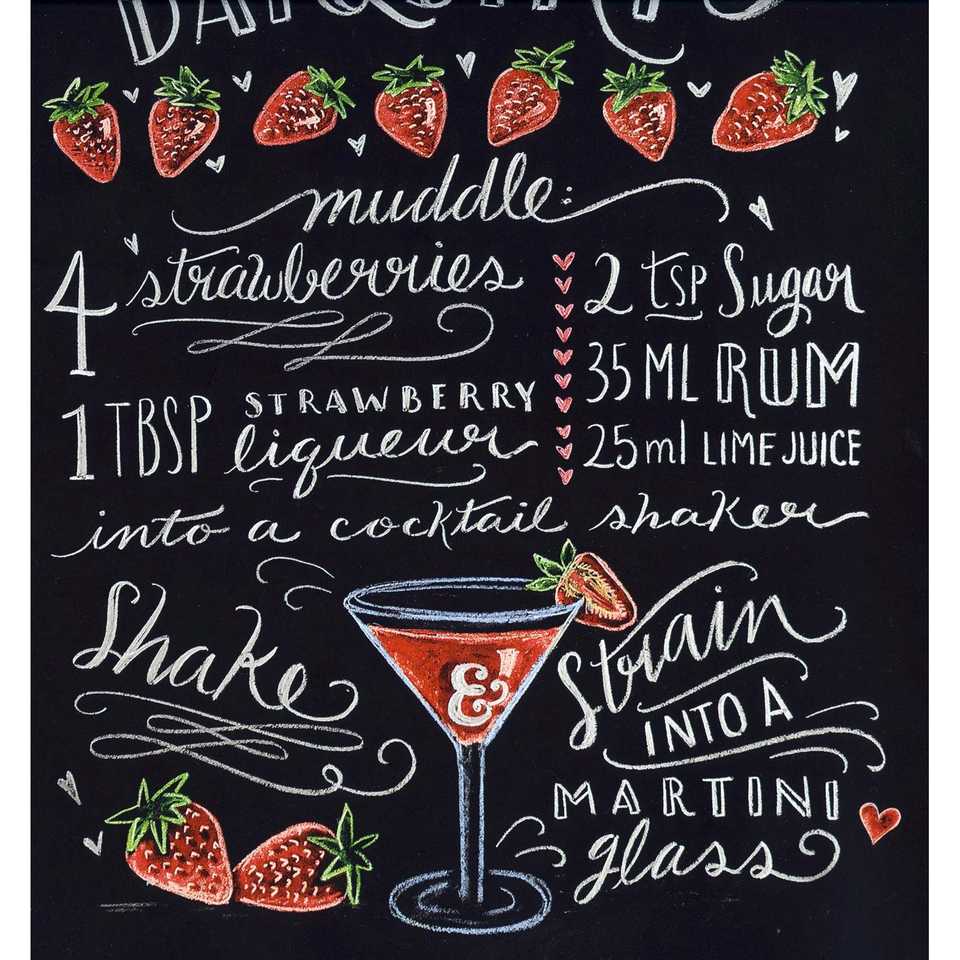 muddle:
4 strawberries
1 TBSP STRAWBERRY liqueur
2 tsp Sugar
35 ML RUM
25ml LIME JUICE
into a cocktail shaker
Shake
&
Strain
INTO A
MARTINI
glass